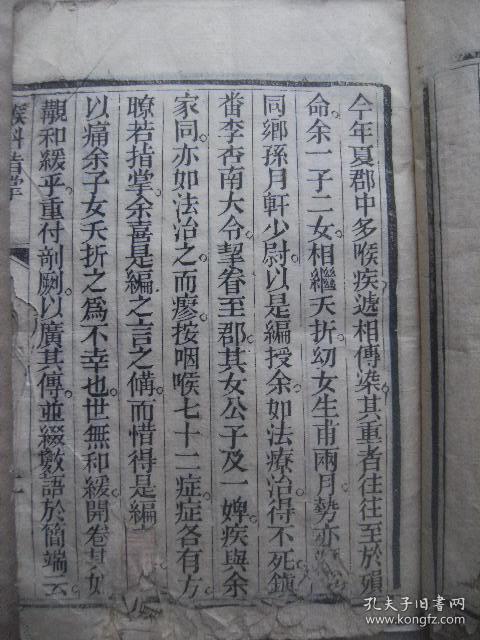 今年夏郡中多喉疾遞相傳染其重者往往至於殞
命余一子二女相繼夭折幼女生甫兩月勢亦
同鄉孫月軒少尉以是編授余如法療治得不死鎮
番李杏南大令挈眷至郡其女公子及一婢疾與余
家同亦如法治之而瘳按咽喉七十二症症各有方
瞭若指掌余喜是編之言之備而惜得是編
以痛余子女夭折之為不幸也世無和緩開卷其如
覩和緩乎重付剞劂以廣其傳並綴數語於簡端云
喉科指掌
孔夫子旧书网